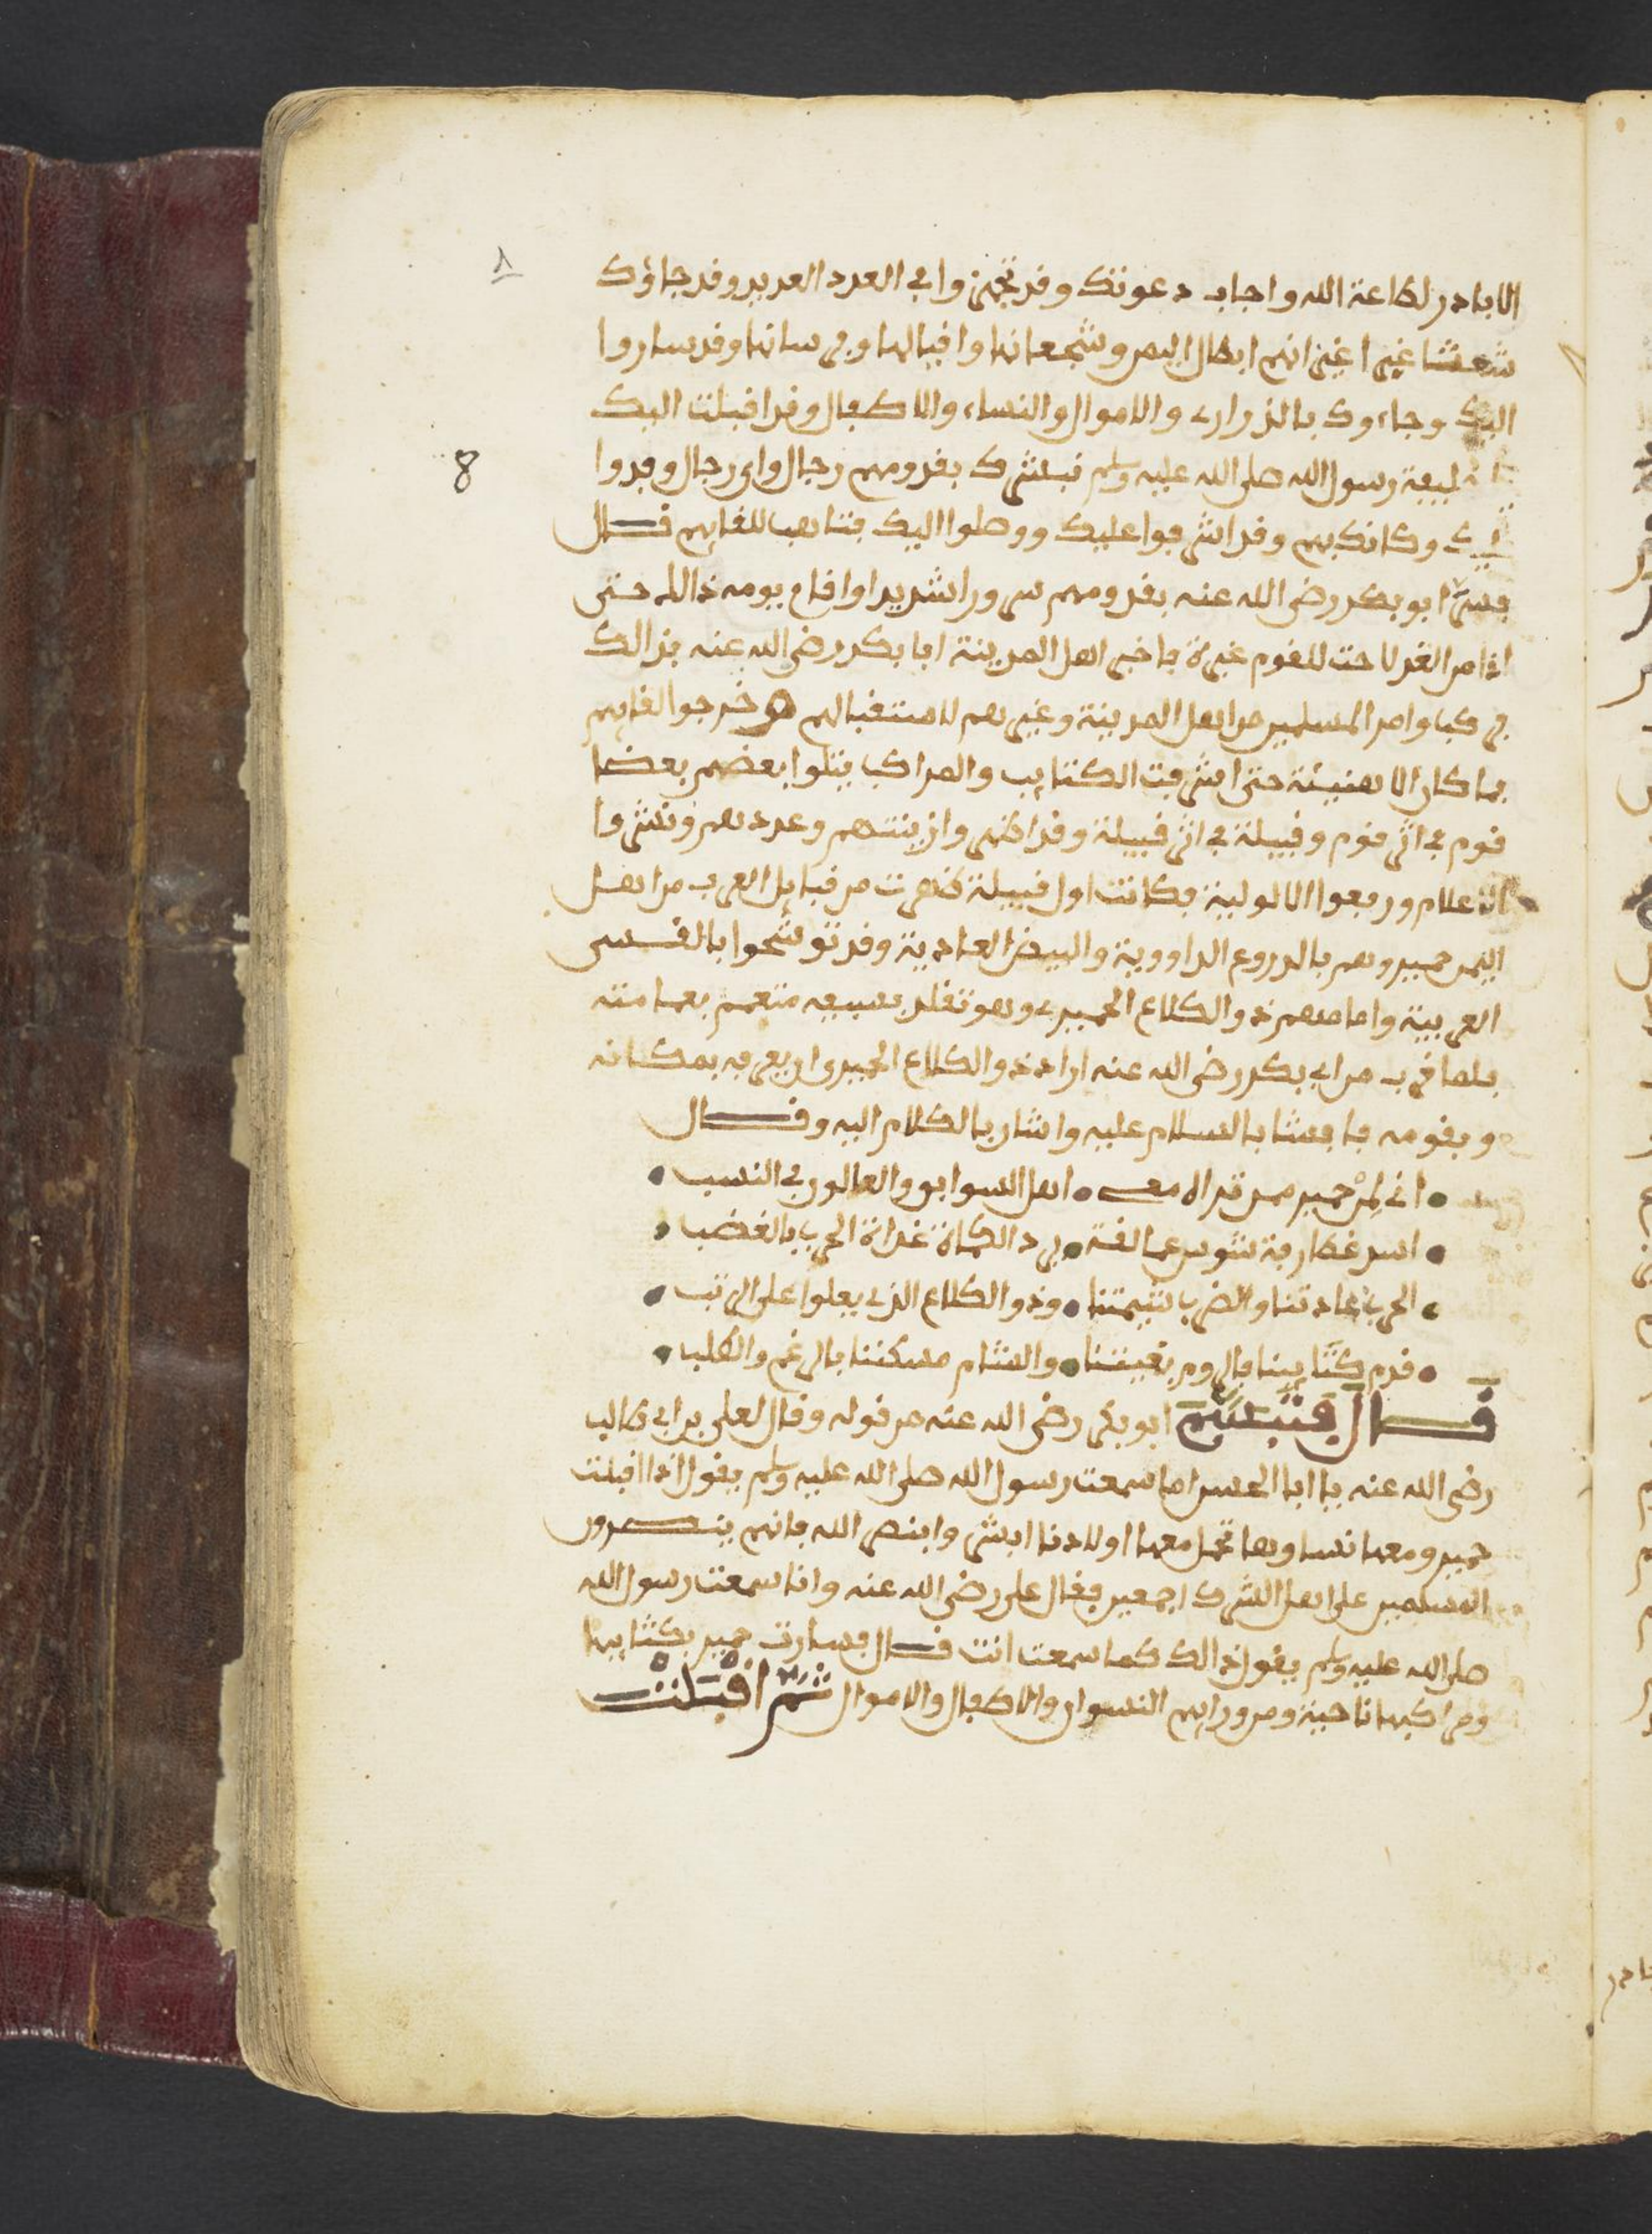 ٨
8
الا بادر لطاعة الله واجاب دعوتك وقد تجهزوا في العدد العديد وقد جاؤك
شعثا غبرا غير انهم ابطال اليمن وشجعانها واقيالها وفرسانها وقد ساروا
اليك وجاءوك بالذراري والاموال والنساء والاطفال وقد اقبلت اليك
خليفة رسول الله صلى الله عليه وسلم نبشرك بقدومهم رجال واي رجال وفدوا
اليك وكانك بهم وقد اشرفوا عليك ووصلوا اليك فتاهب للقايهم قال
فسر ابو بكر رضي الله عنه بقدومهم سرورا شديدا واقام يومه ذالك حتى
اذا من الغد لاحت للقوم غبرة فاخبر اهل المدينة ابا بكر رضي الله عنه بذالك
فركب وامر المسلمين من اهل المدينة وغيرهم لاستقبالهم وخرجوا للقايهم
فما كان الا هنيئة حتى اشرفت الكتايب والمراكب يتلوا بعضهم بعضا
قوم في اثر قوم وقبيلة في اثر قبيلة وقد اظهروا زينتهم وعددهم ونشروا
الاعلام ورفعوا الالولية فكانت اول قبيلة ظهرت من قبايل العرب من اهل
اليمن حمير وهم بالدروع الداوودية والبيض العادية وقد توشحوا بالقسي
العربية وامامهم ذو الكلاع الحميري وهو تقلد بسيفه متعمم بعمامته
فلما قرب من ابي بكر رضي الله عنه اراد ذو الكلاع الحميري ان يعرفه بمكانه
وبقومه فافشا بالسلام عليه واشار بالكلام اليه وقال
• اني لمن حمير ممن تراه معي • اهل السوابق والعالون في النسب •
• اسد غطارفة شوس عمالقة • يرد الكماة غداة الحرب بالغضب •
• الحرب عادتنا والضرب شيمتنا • وذو الكلاع الذي يعلوا على الرتب •
• قدم كتايبنا فالروم بغيتنا • والشام مسكننا بالرغم والطلب •
قال فتبسم ابو بكر رضي الله عنه من قوله وقال لعلي بن ابي طالب
رضي الله عنه يا ابا الحسن اما سمعت رسول الله صلى الله عليه وسلم يقول اذا اقبلت
حمير ومعها نساوها تحمل معها اولادنا ابشر وابنصر الله فانهم ينصرون
المسلمين على اهل الشرك اجمعين فقال علي رضي الله عنه وانا سمعت رسول الله
صلى الله عليه وسلم يقول ذالك كما سمعت انت قال فسارت حمير بكتايبها
ومراكبها ناحية ومن ورايهم النسوان والاطفال والاموال ثم اقبلت